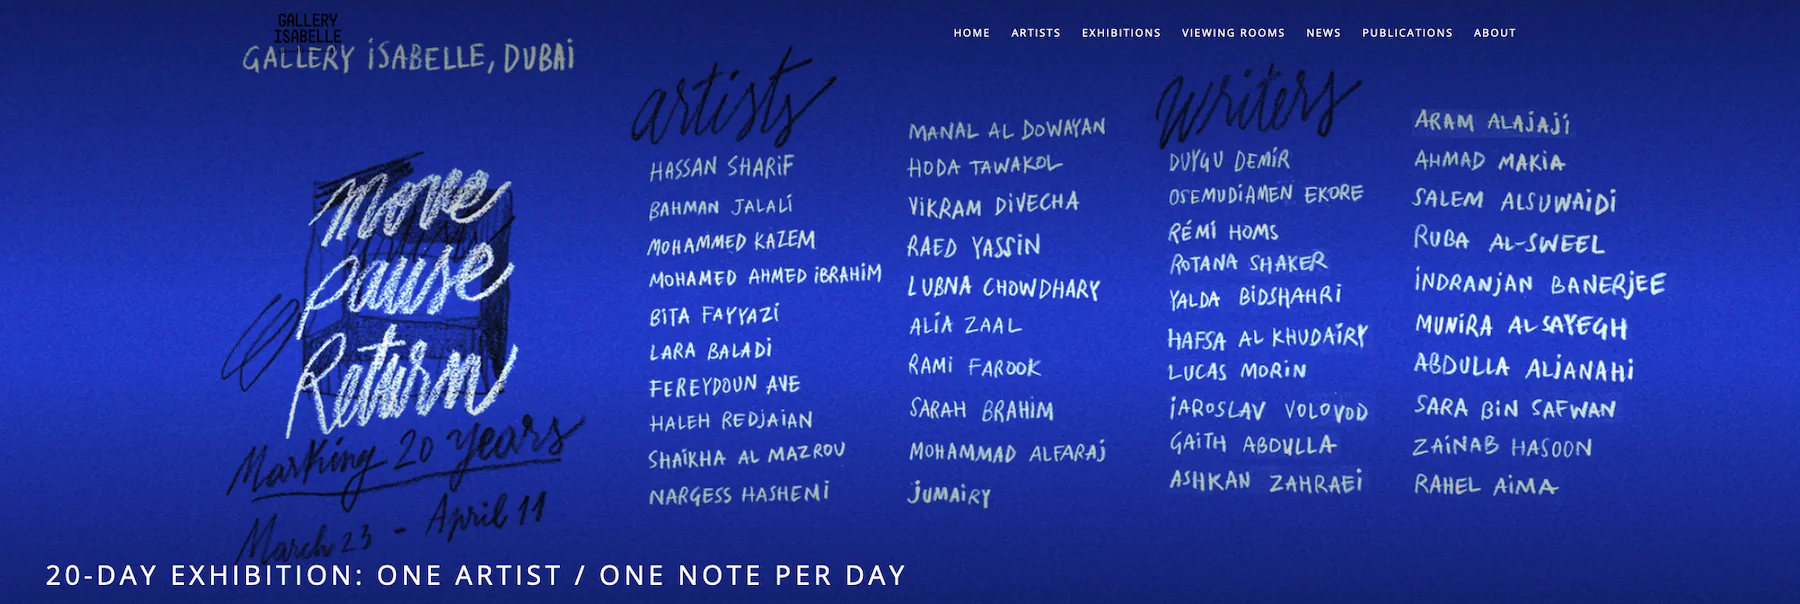 GALLERY
ISABELLE
HOME ARTISTS EXHIBITIONS VIEWING ROOMS NEWS PUBLICATIONS ABOUT
GALLERY ISABELLE, DUBAI
Move
Pause
Return
Marking 20 years
March 23 - April 11
artists
HASSAN SHARIF
BAHMAN JALALI
MOHAMMED KAZEM
MOHAMED AHMED IBRAHIM
BITA FAYYAZI
LARA BALADI
FEREYDOUN AVE
HALEH REDJAIAN
SHAIKHA AL MAZROU
NARGESS HASHEMI
MANAL AL DOWAYAN
HODA TAWAKOL
VIKRAM DIVECHA
RAED YASSIN
LUBNA CHOWDHARY
ALIA ZAAL
RAMI FAROOK
SARAH BRAHIM
MOHAMMAD ALFARAJ
JUMAIRY
writers
DUYGU DEMIR
OSEMUDIAMEN EKORE
RÉMI HOMS
ROTANA SHAKER
YALDA BIDSHAHRI
HAFSA AL KHUDAIRY
LUCAS MORIN
IAROSLAV VOLOVOD
GAITH ABDULLA
ASHKAN ZAHRAEI
ARAM ALAJAJI
AHMAD MAKIA
SALEM ALSUWAIDI
RUBA AL-SWEEL
INDRANJAN BANERJEE
MUNIRA AL SAYEGH
ABDULLA ALJANAHI
SARA BIN SAFWAN
ZAINAB HASOON
RAHEL AIMA
20-DAY EXHIBITION: ONE ARTIST / ONE NOTE PER DAY